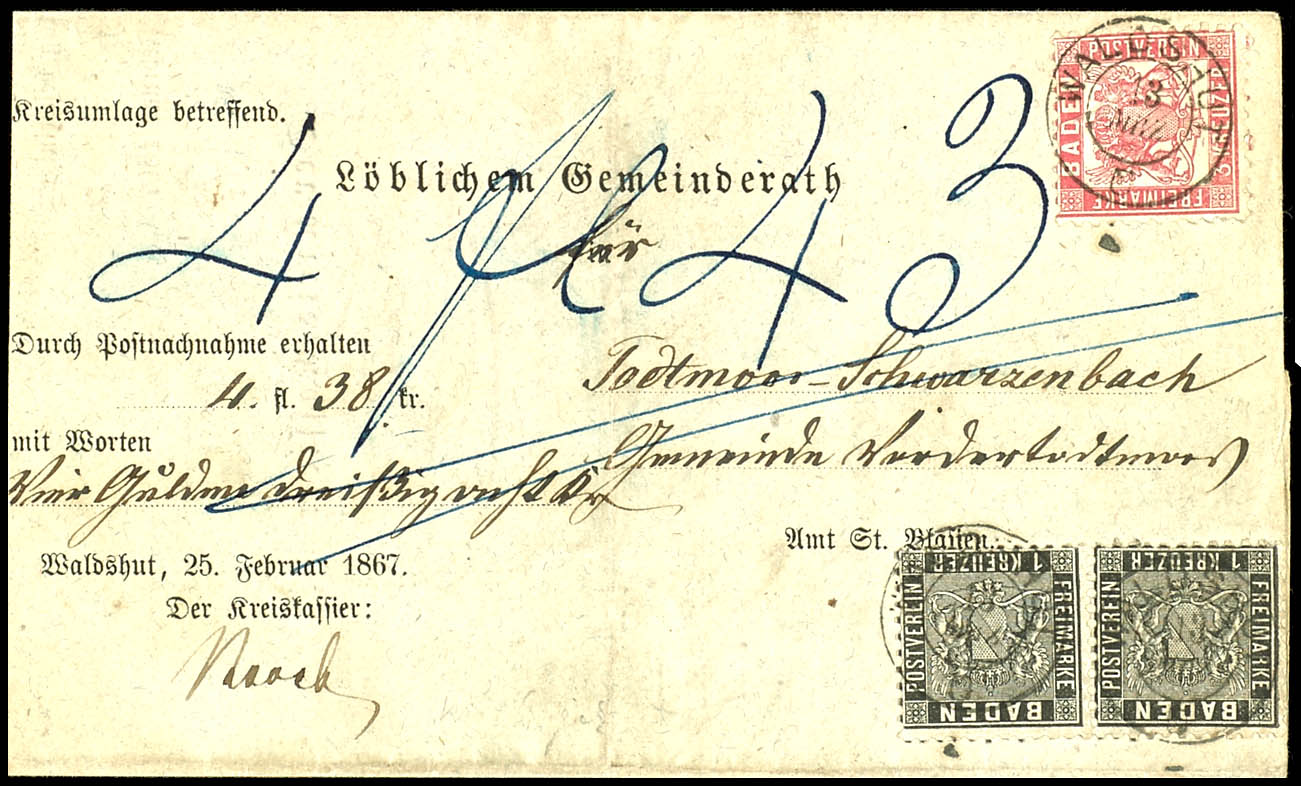 Kreisumlage betreffend.
Löblichem Gemeinderath
für
4 43
Durch Postnachnahme erhalten
4. fl. 38 kr.
Todtmoos-Schwarzenbach
mit Worten
Gemeinde Vordertodtmoos
Vier Gulden dreißig acht Kr
Amt St. Blasien.
Waldshut, 25. Februar 1867.
Der Kreiskassier:
POSTVEREIN
BADEN
3 KREUZER
FREIMARKE
WALDSHUT
13
1 KREUZER
POSTVEREIN
FREIMARKE
BADEN
1 KREUZER
POSTVEREIN
FREIMARKE
BADEN